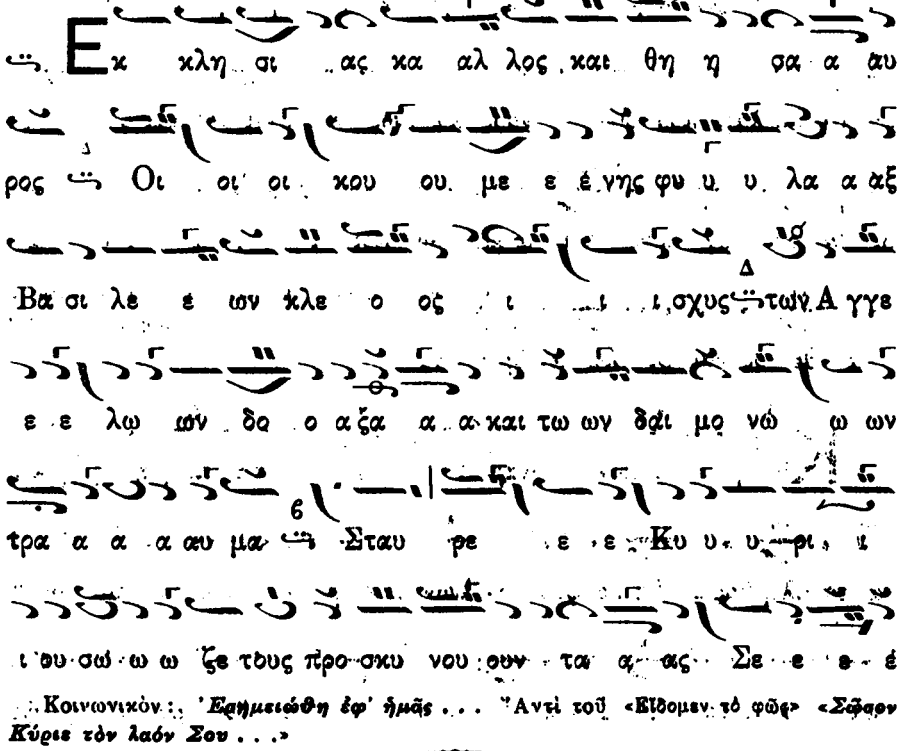 Εκ κλη σι ας κα αλ λος και θη η σα α αυ
ρος Οι οι οι κου ου με ε έ νης φυ υ υ λα α αξ
Βα σι λε ε ων κλε ο ος ι ι ι σχυς Δ των Α γγε
ε ε λω ων δο ο α ξα α α και τω ων δαι μο νώ ω ων
τρα α α α αυ μα Σταυ ρε ε ε Κυ υ υ ρι ι
ι ου σω ω ω ζε τους προ σκυ νου ουν τα α ας Σε ε ε έ
Κοινωνικὸν: Ἐσημειώθη ἐφ' ἡμᾶς ... Ἀντὶ τοῦ «Εἴδομεν τὸ φῶς» «Σῶσον
Κύριε τὸν λαόν Σου ...»